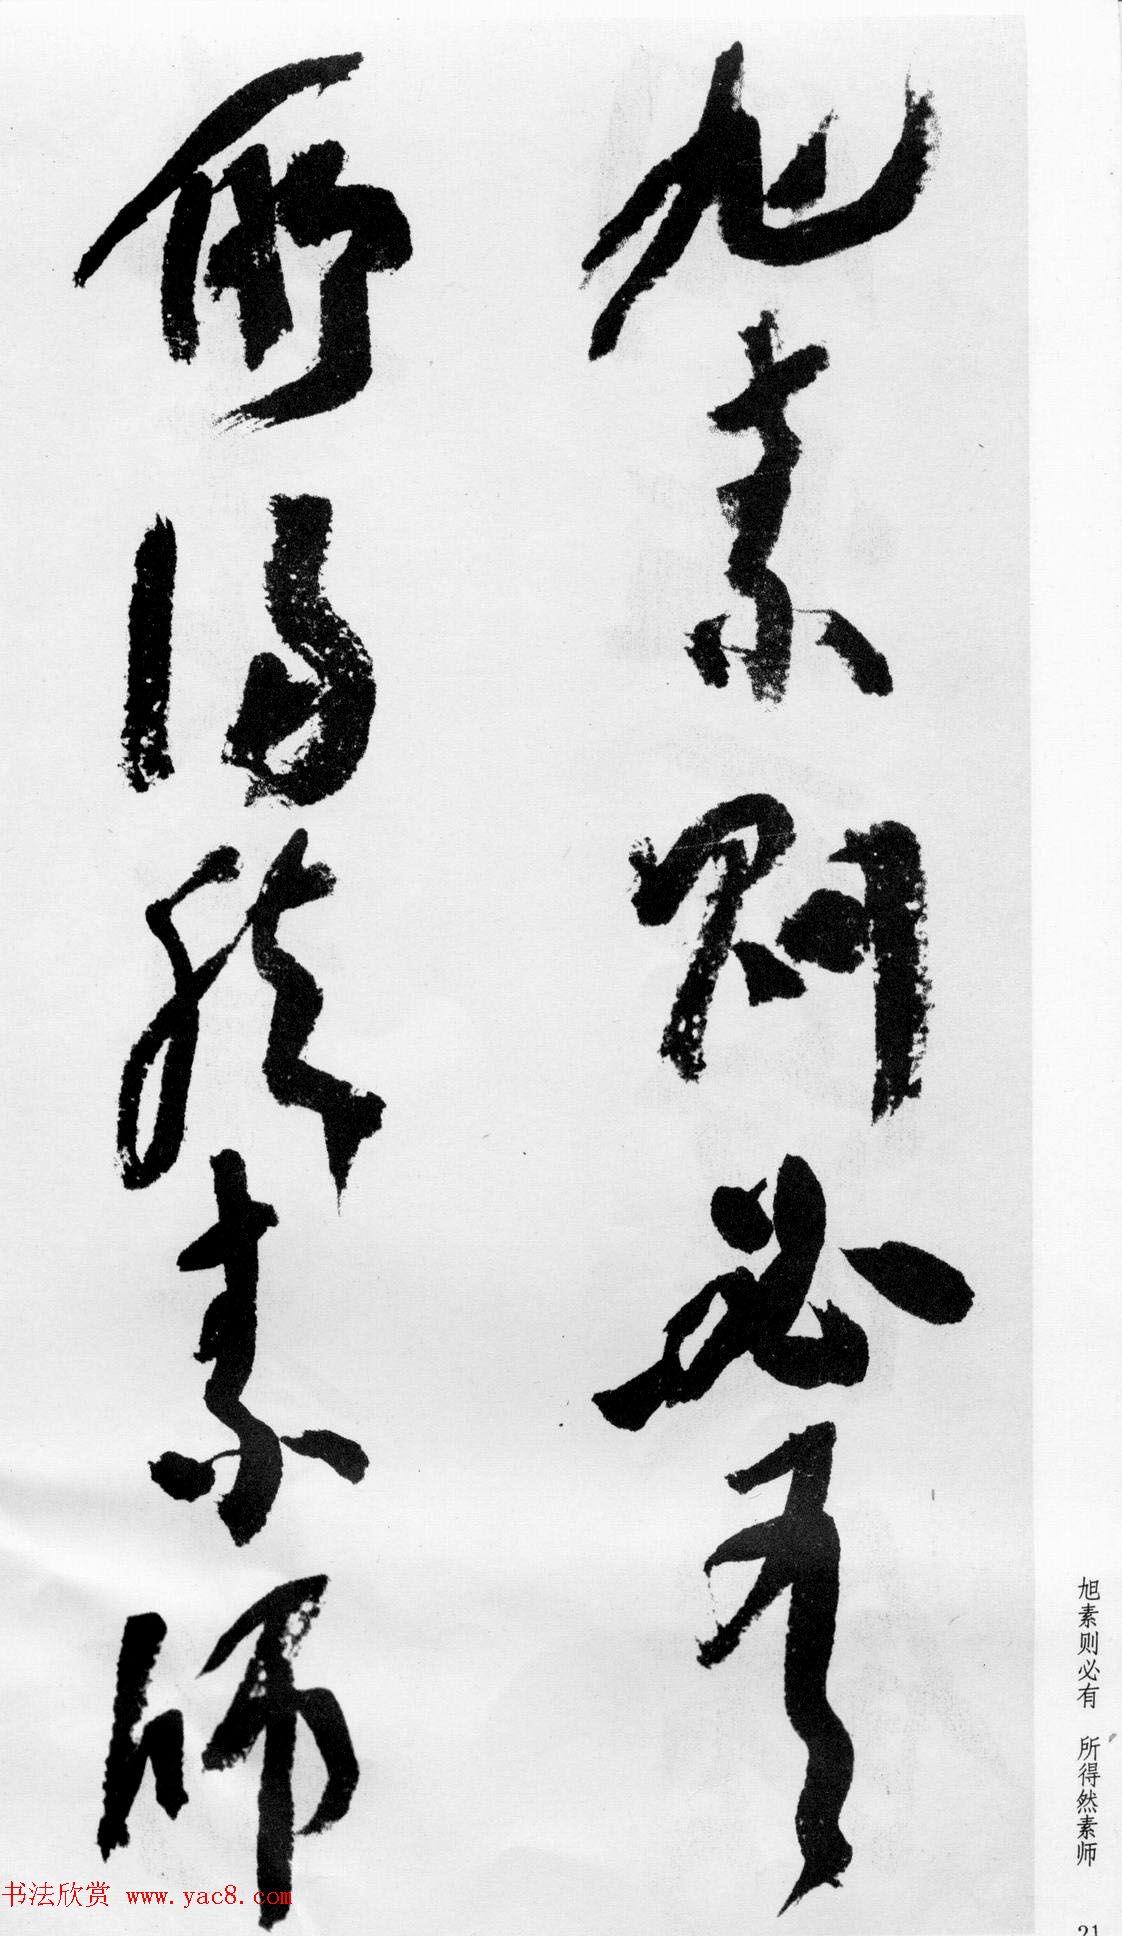 旭素则必有
所得然素师
旭素则必有 所得然素师
21
书法欣赏 www.yac8.com